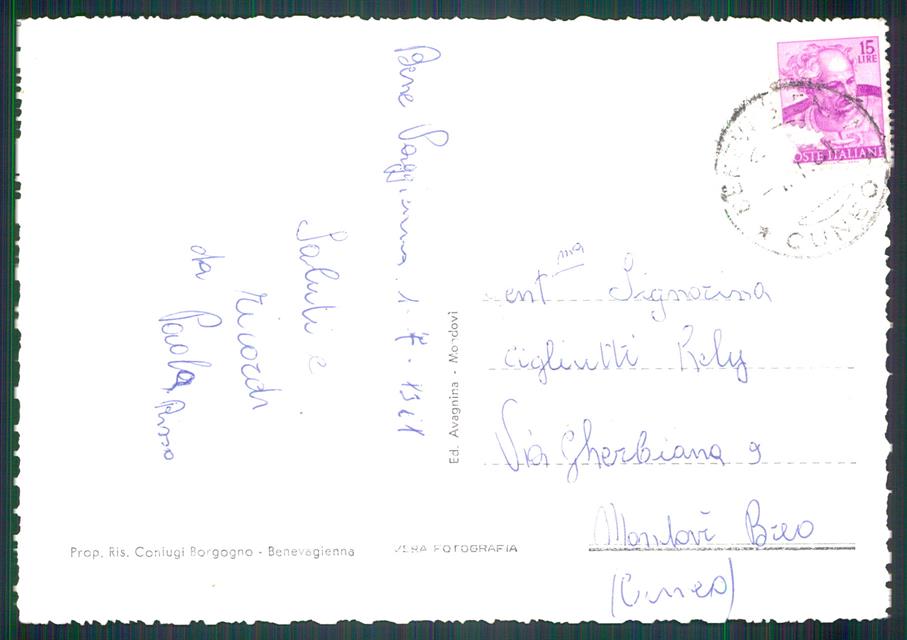 Bene Vaggienna. 1-7-1961
Saluti e
ricordi
da Paola Russo
Ed. Avagnina - Mondovì
Prop. Ris. Coniugi Borgogno - Benevagienna
VERA FOTOGRAFIA
15
LIRE
POSTE ITALIANE
CUNEO
Gent ma Signorina
Cigliutti Rely
Via Gherbiana 9
Mondovì Breo
(Cuneo)